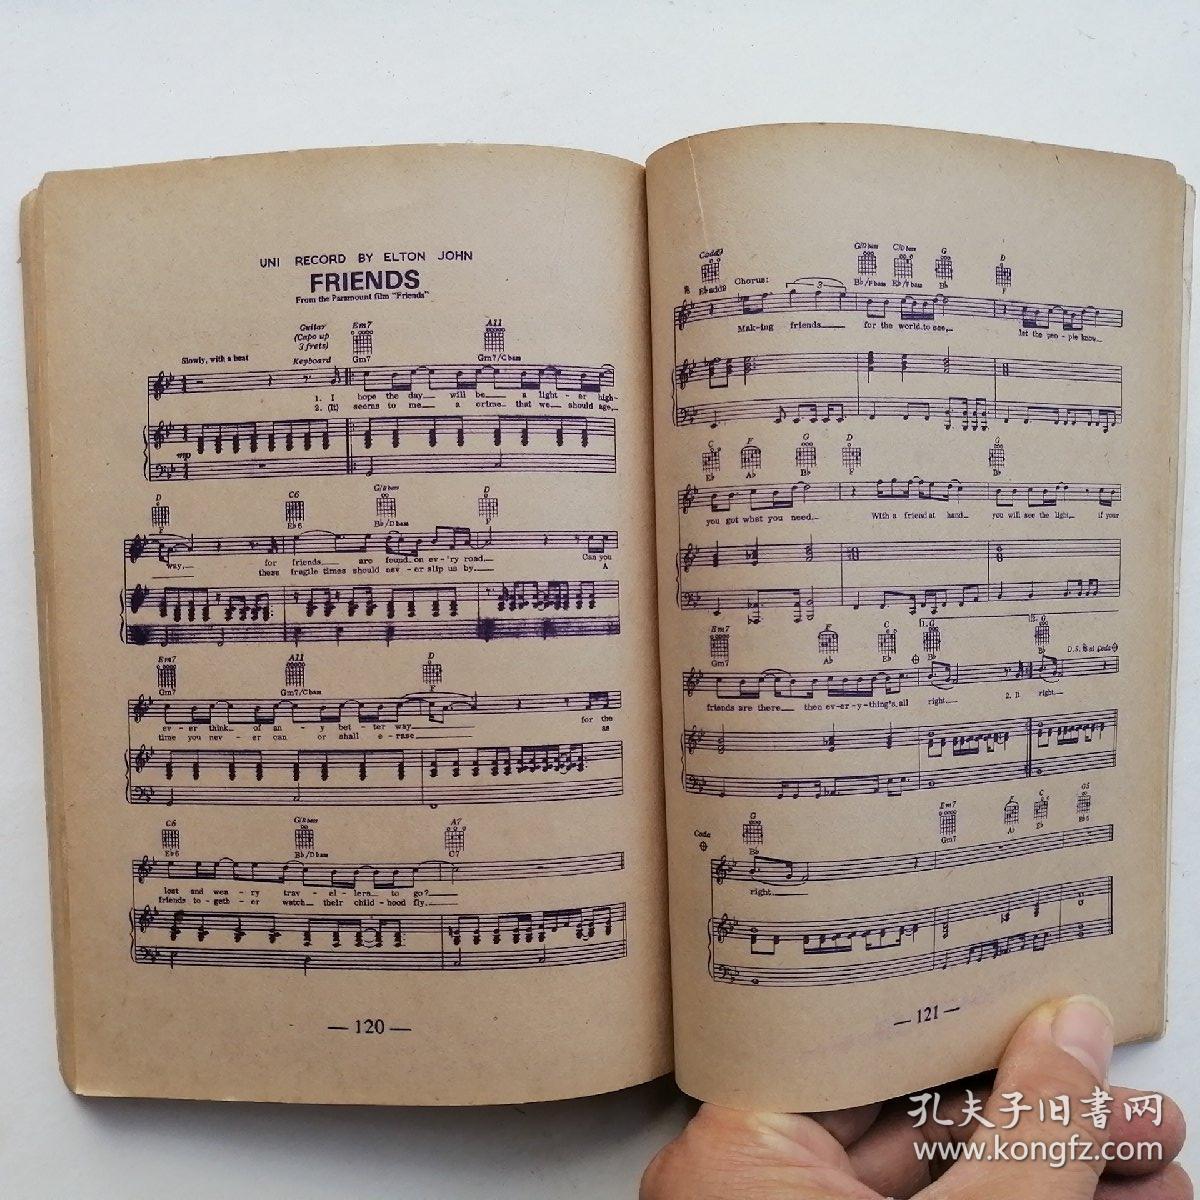 UNI RECORD BY ELTON JOHN
FRIENDS
From the Paramount film "Friends"
Guitar Em7 A11
(Capo up
3 frets)
Slowly, with a beat Keyboard Gm7 Gm7/C bass
1. I hope the day will be a light - er high-
2. (It) seems to me a crime that we should age,
mp
D C6 G/B bass D
F Eb6 Bb/D bass F
way, for friends are found on ev-'ry road. Can you
these fragile times should nev-er slip us by. A
Em7 A11 D
Gm7 Gm7/C bass F
ev - er think of an - y bet - ter way for the
time you nev - er can or shall e - rase as
C6 G/B bass A7
Eb6 Bb/D bass C7
lost and wea - ry trav - el - lers to go?
friends to - geth - er watch their child - hood fly.
— 120 —
Cadd9 G/D bass C/D bass G D
Ebadd9 Chorus: Bb/F bass Eb/F bass Bb F
3
Mak-ing friends for the world to see, let the peo - ple know
C F G D G
Eb Ab Bb Bb
you got what you need. With a friend at hand you will see the light, if your
Em7 F C G G
Gm7 Ab Eb Bb Bb D.S. at Coda
friends are there then ev-er-y-thing's all right. 2. It right.
G Em7 F C G6
Coda Bb Gm7 Ab Eb Bb6
right.
— 121 —
孔夫子旧書网
www.kongfz.com